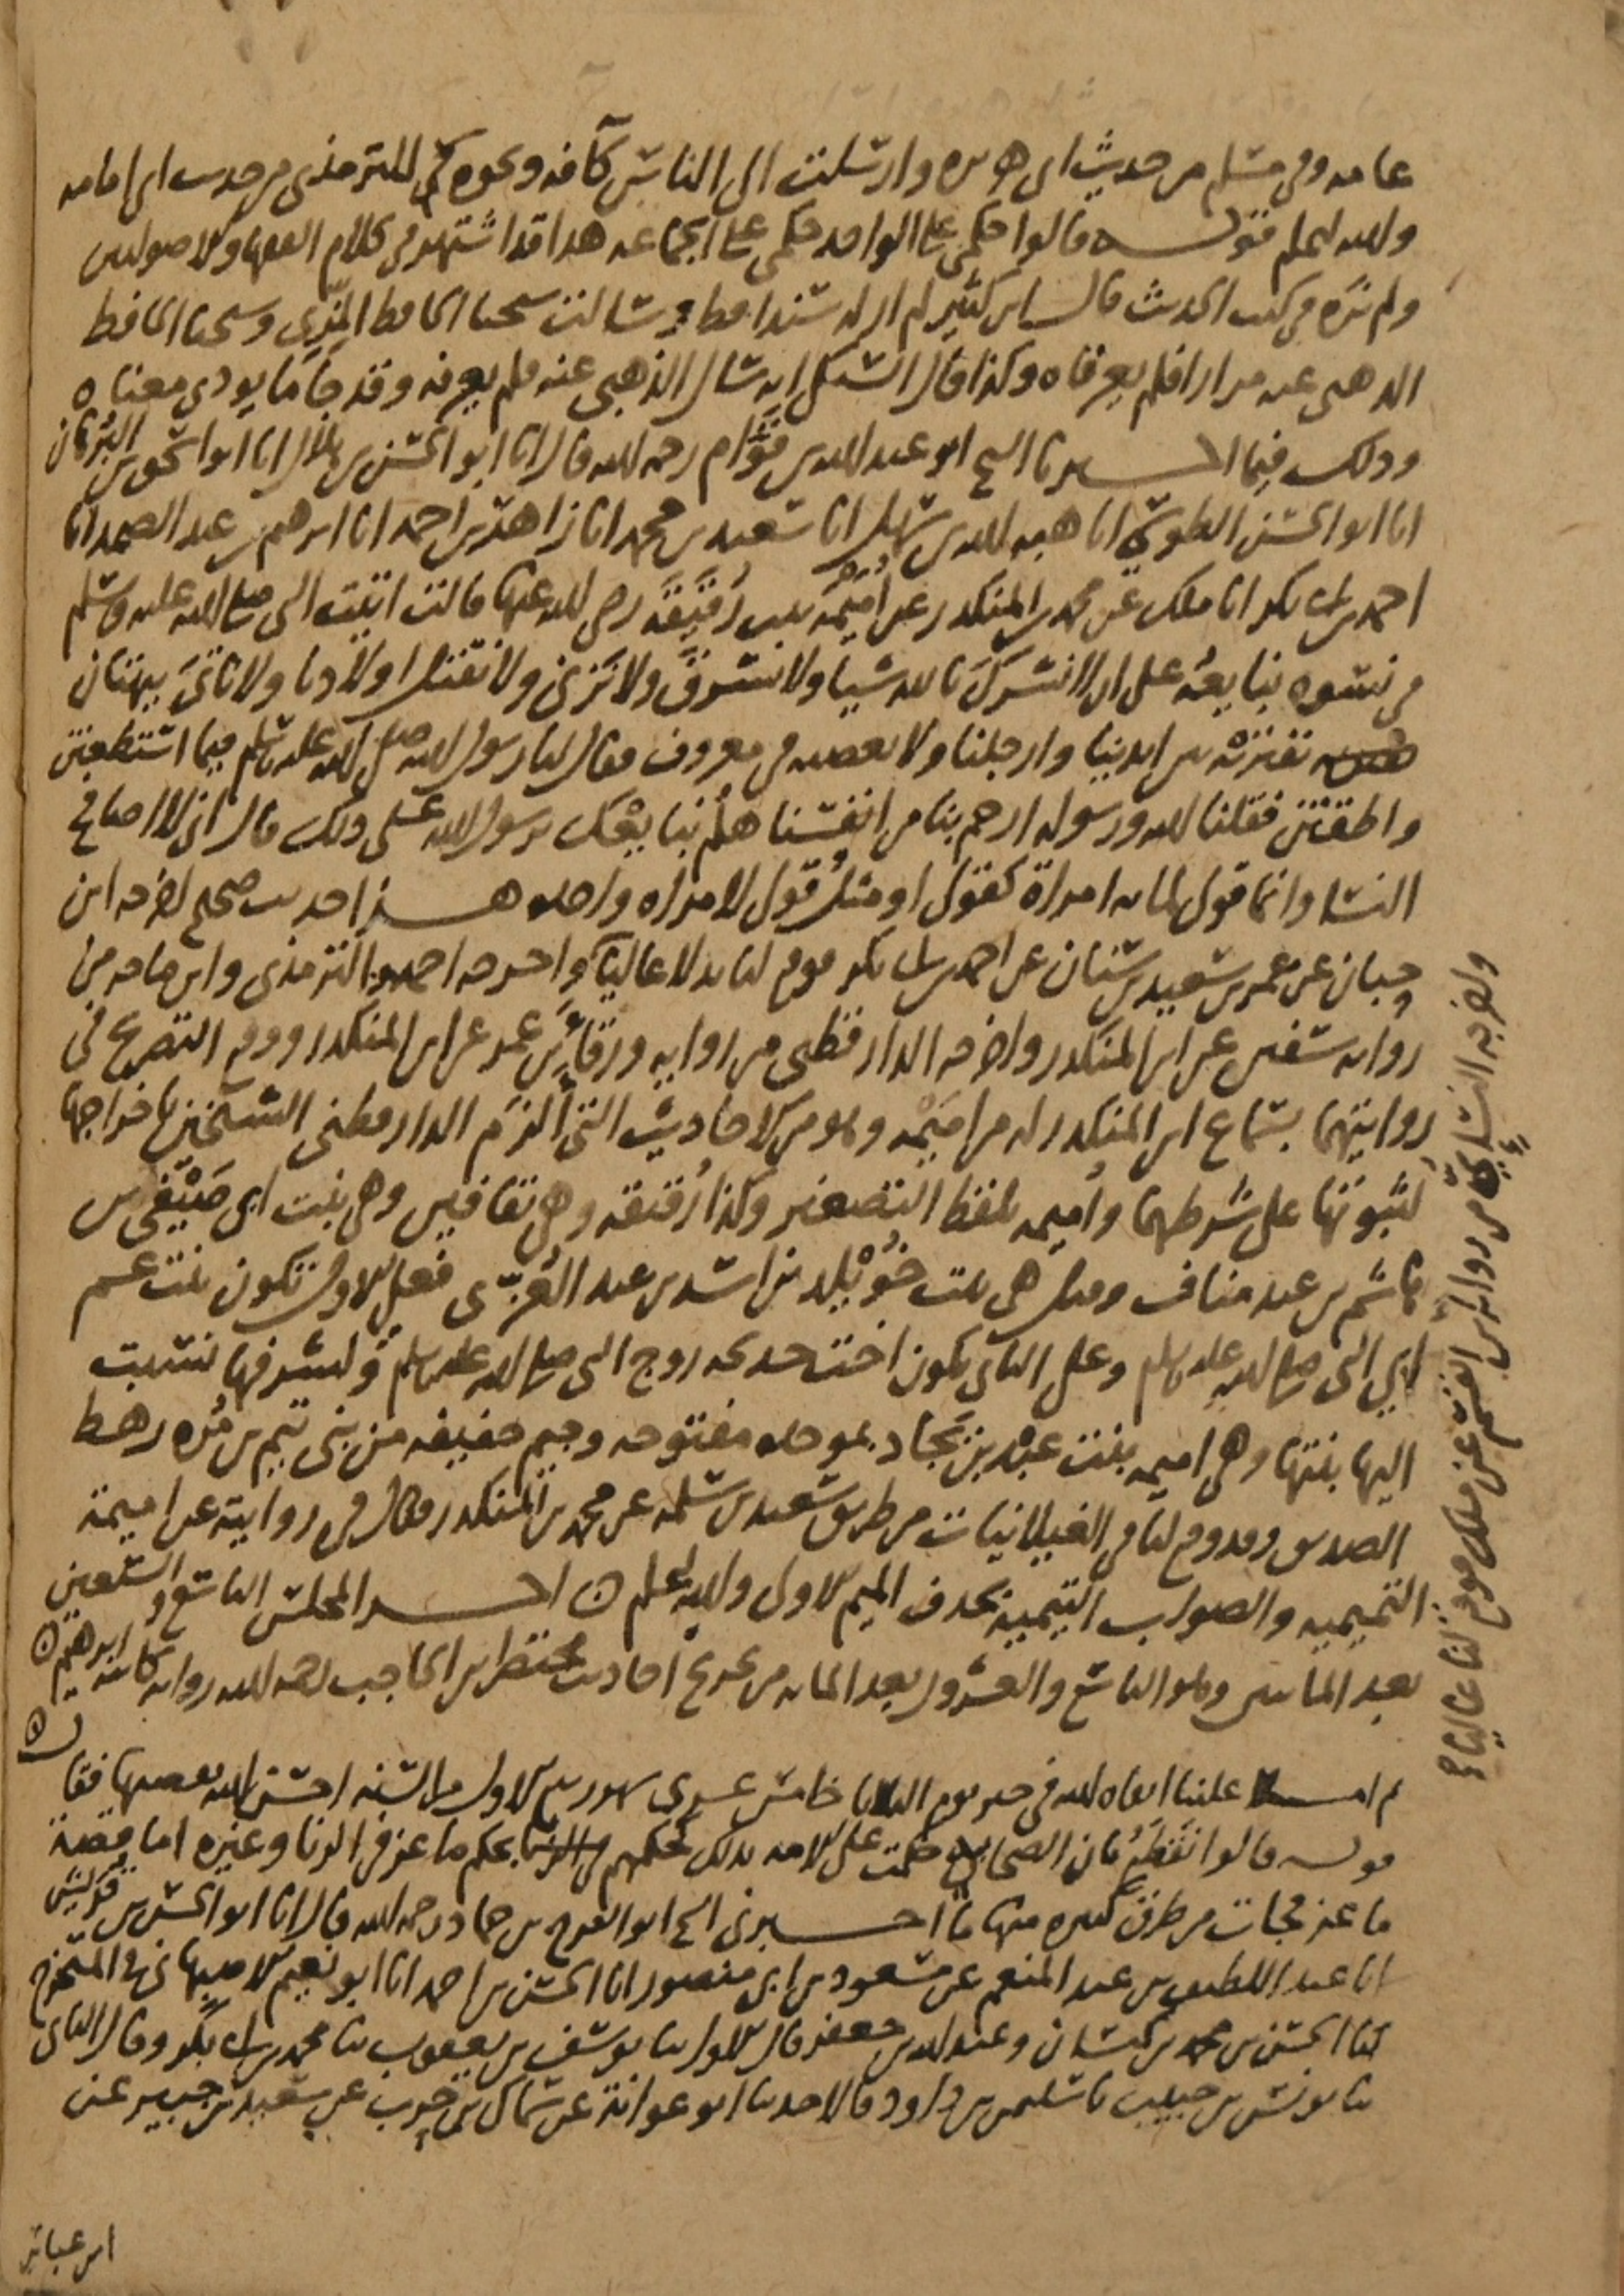 عامه وفي مسلم من حديث ابي هريره وارسلت الى الناس كآفه ونحوه للترمذي من حديث ابي امامه
والله اعلم قوله قالوا حكمي على الواحد حكمي على الجماعه هذا قد اشتهر في كلام الفقها والاصوليين
ولم نره في كتب الحديث قال ابن كثير لم ار له سندا قط وسالت شيخنا الحافظ المِزّي وشيخنا الحافظ
الذهبي عنه مرارا فلم يعرفاه وكذا قال السبكي انه سال الذهبي عنه فلم يعرفه وقد جا ما يودي معناه
وذلك فيما اخبرنا الشيخ ابو عبد الله بن قوَّام رحمه الله قال انا ابو الحسن بن هلال انا ابو اسحق بن البُرهان
انا ابو الحسن الطوسي انا هبه الله بن سهل انا سعيد بن محمد انا زاهر بن احمد انا ابرهيم بن عبد الصمد انا
احمد بن ابي بكر انا ملك عن محمد بن المنكدر عن اُميمَه بنت رُقَيقَة رضي الله عنها قالت اتيت النبي صلى الله عليه وسلم
في نسوه نبايعُه على ان لا نشركَ بالله شيا ولا نسرقَ ولا نَزني ولا نقتل اولادنا ولا ناتيَ ببهتان
نفتريْه بين ايدينا وارجلنا ولا نعصيه في معروف فقال لنا رسول الله صلى الله عليه وسلم فيما استطعتن
واطقتن فقلنا الله ورسوله ارحم بنا من انفسنا هلُم نبايعْك يرسول الله على ذلك قال اني لا اصافح
النسا وانما قولي لمايه امراة كقولي او مثلُ قولي لامراه واحده هذا حديث صحيح اخرجه ابن
حبان عن عمر بن سعيد بن سنان عن احمد بن ابي بكر فوقع لنا بدلا عاليًا واخرجه احمد والترمذي وابن ماجه من
روايه سفين عن ابن المنكدر واخرجه الدارقطني من روايه ورقاء بن عمر عن ابن المنكدر ووقع التصريح في
روايتهما بسماع ابن المنكدر له من اميمْه وهو من الاحاديث التي ألزَم الدارقطني الشيخين باخراجها
لثبوتها على شرطهما واُميمه بلفظ التصغير وكذا رُقيقه وهي بقافين وهي بنت ابي صَيْفي بن
هاشم بن عبد مناف وقيل هي بنت خُوَيْلد بن اسد بن عبد العُزّى فعلى الاول تكون بنت عم
ابي النبي صلى الله عليه وسلم وعلى الثاني تكون اخت خديجه زوج النبي صلى الله عليه وسلم ولشرفها نسبت
اليها بنتها وهي اميمه بنت عبْد بن بجَاد بموحده مفتوحه وجيم خفيفه من بني تيم بن مُره رهط
الصديق وقد وقع لنا في الغيلانيات من طريق سعيد بن سلمه عن محمد بن المنكدر فقال في روايته عن اميمة
التميميه والصواب التيميه بحذف الميم الاولى والله اعلم ۞ اخر المجلس التاسع والتسعين
بعد الماتين وهو التاسع والعشرون بعد المايه من تخريج احاديث مختصر ابن الحاجب لطف الله روايه كاتبه ابرهيم ۞
ثم املا علينا ابقاه الله في خير يوم الثلاثا خامس عشري شهر ربيع الاول من السنه احسن الله تقضيها فقال
قوله قالوا نقطعُ بان الصحابه حكمت على الامه بذلك كحكمهم بحكم ماعز في الزنا وغيره اما قصة
ماعز فجات من طرق كثيره منها ما اخبرني الشيخ ابو الفرج بن حماد رحمه الله قال انا ابو الحسن بن قُريش
انا عبد اللطيف بن عبد المنعم عن مسعود بن ابي منصور انا الحسن بن احمد انا ابو نعيم الاصبهاني في المستخرج
ثنا الحسن بن محمد بن كيسان وعبد الله بن جعفر قال الاول ثنا يوسف بن يعقوب ثنا محمد بن ابي بكر وقال الثاني
ثنا يونس بن حبيب ثنا سليمن بن داود قالا حدثنا ابو عوانة عن سماك بن حرب عن سعيد بن جبير عن
ابن عباس
واخرجه النسائي من روايه ابن القسم عن ملك فوقع لنا عاليا